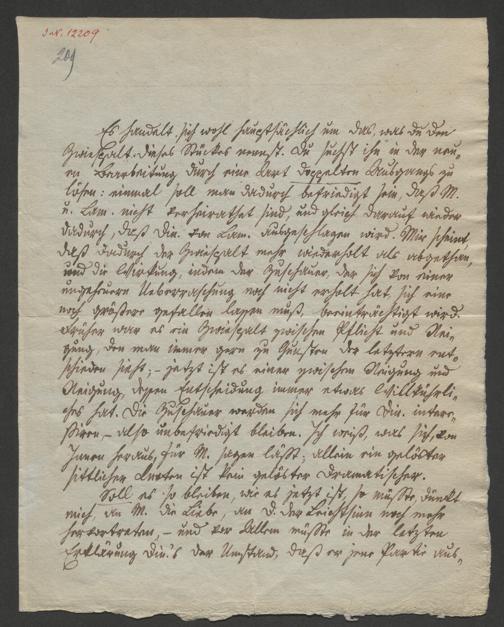 I.N. 12209
209
Es handelt sich wohl hauptsächlich um das, was du den
Zwiespalt dieses Stückes nennst. Du suchst ihn in der neu-
en Bearbeitung durch eine Art doppelten Ausgangs zu
lösen: einmal soll man dadurch befriedigt sein, daß M.
u. Lam. nicht verheirathet sind, und gleich darauf wieder
dadurch, daß Din. von Lam. ausgeschlagen wird. Mir scheint,
daß dadurch der Zwiespalt mehr wiederholt als abgethan,
und die Wirkung, indem der Zuschauer, der sich von einer
ungeheuren Ueberraschung noch nicht erholt hat, sich eine
noch größere gefallen lassen muß, beeinträchtigt wird.
Früher war es ein Zwiespalt zwischen Pflicht und Nei-
gung, den man immer gern zu Gunsten der letzteren ent-
schieden sieht; – jetzt ist es einer zwischen Neigung und
Neigung, dessen Entscheidung immer etwas Willkührli-
ches hat. Die Zuschauer werden sich mehr für Din. interes-
siren, – also unbefriedigt bleiben. Ich weiß, was sich, von
Innen heraus, für M. sagen läßt; allein ein gelöster
sittlicher Knoten ist kein gelöster dramatischer.
Soll es so bleiben, wie es jetzt ist, so müßte, dünkt
mich, an M. die Liebe, an D. der Leichtsinn noch mehr
hervortreten, – und vor Allem müßte in der letzten
Erklärung Din's der Umstand, daß er jene Partie aus-